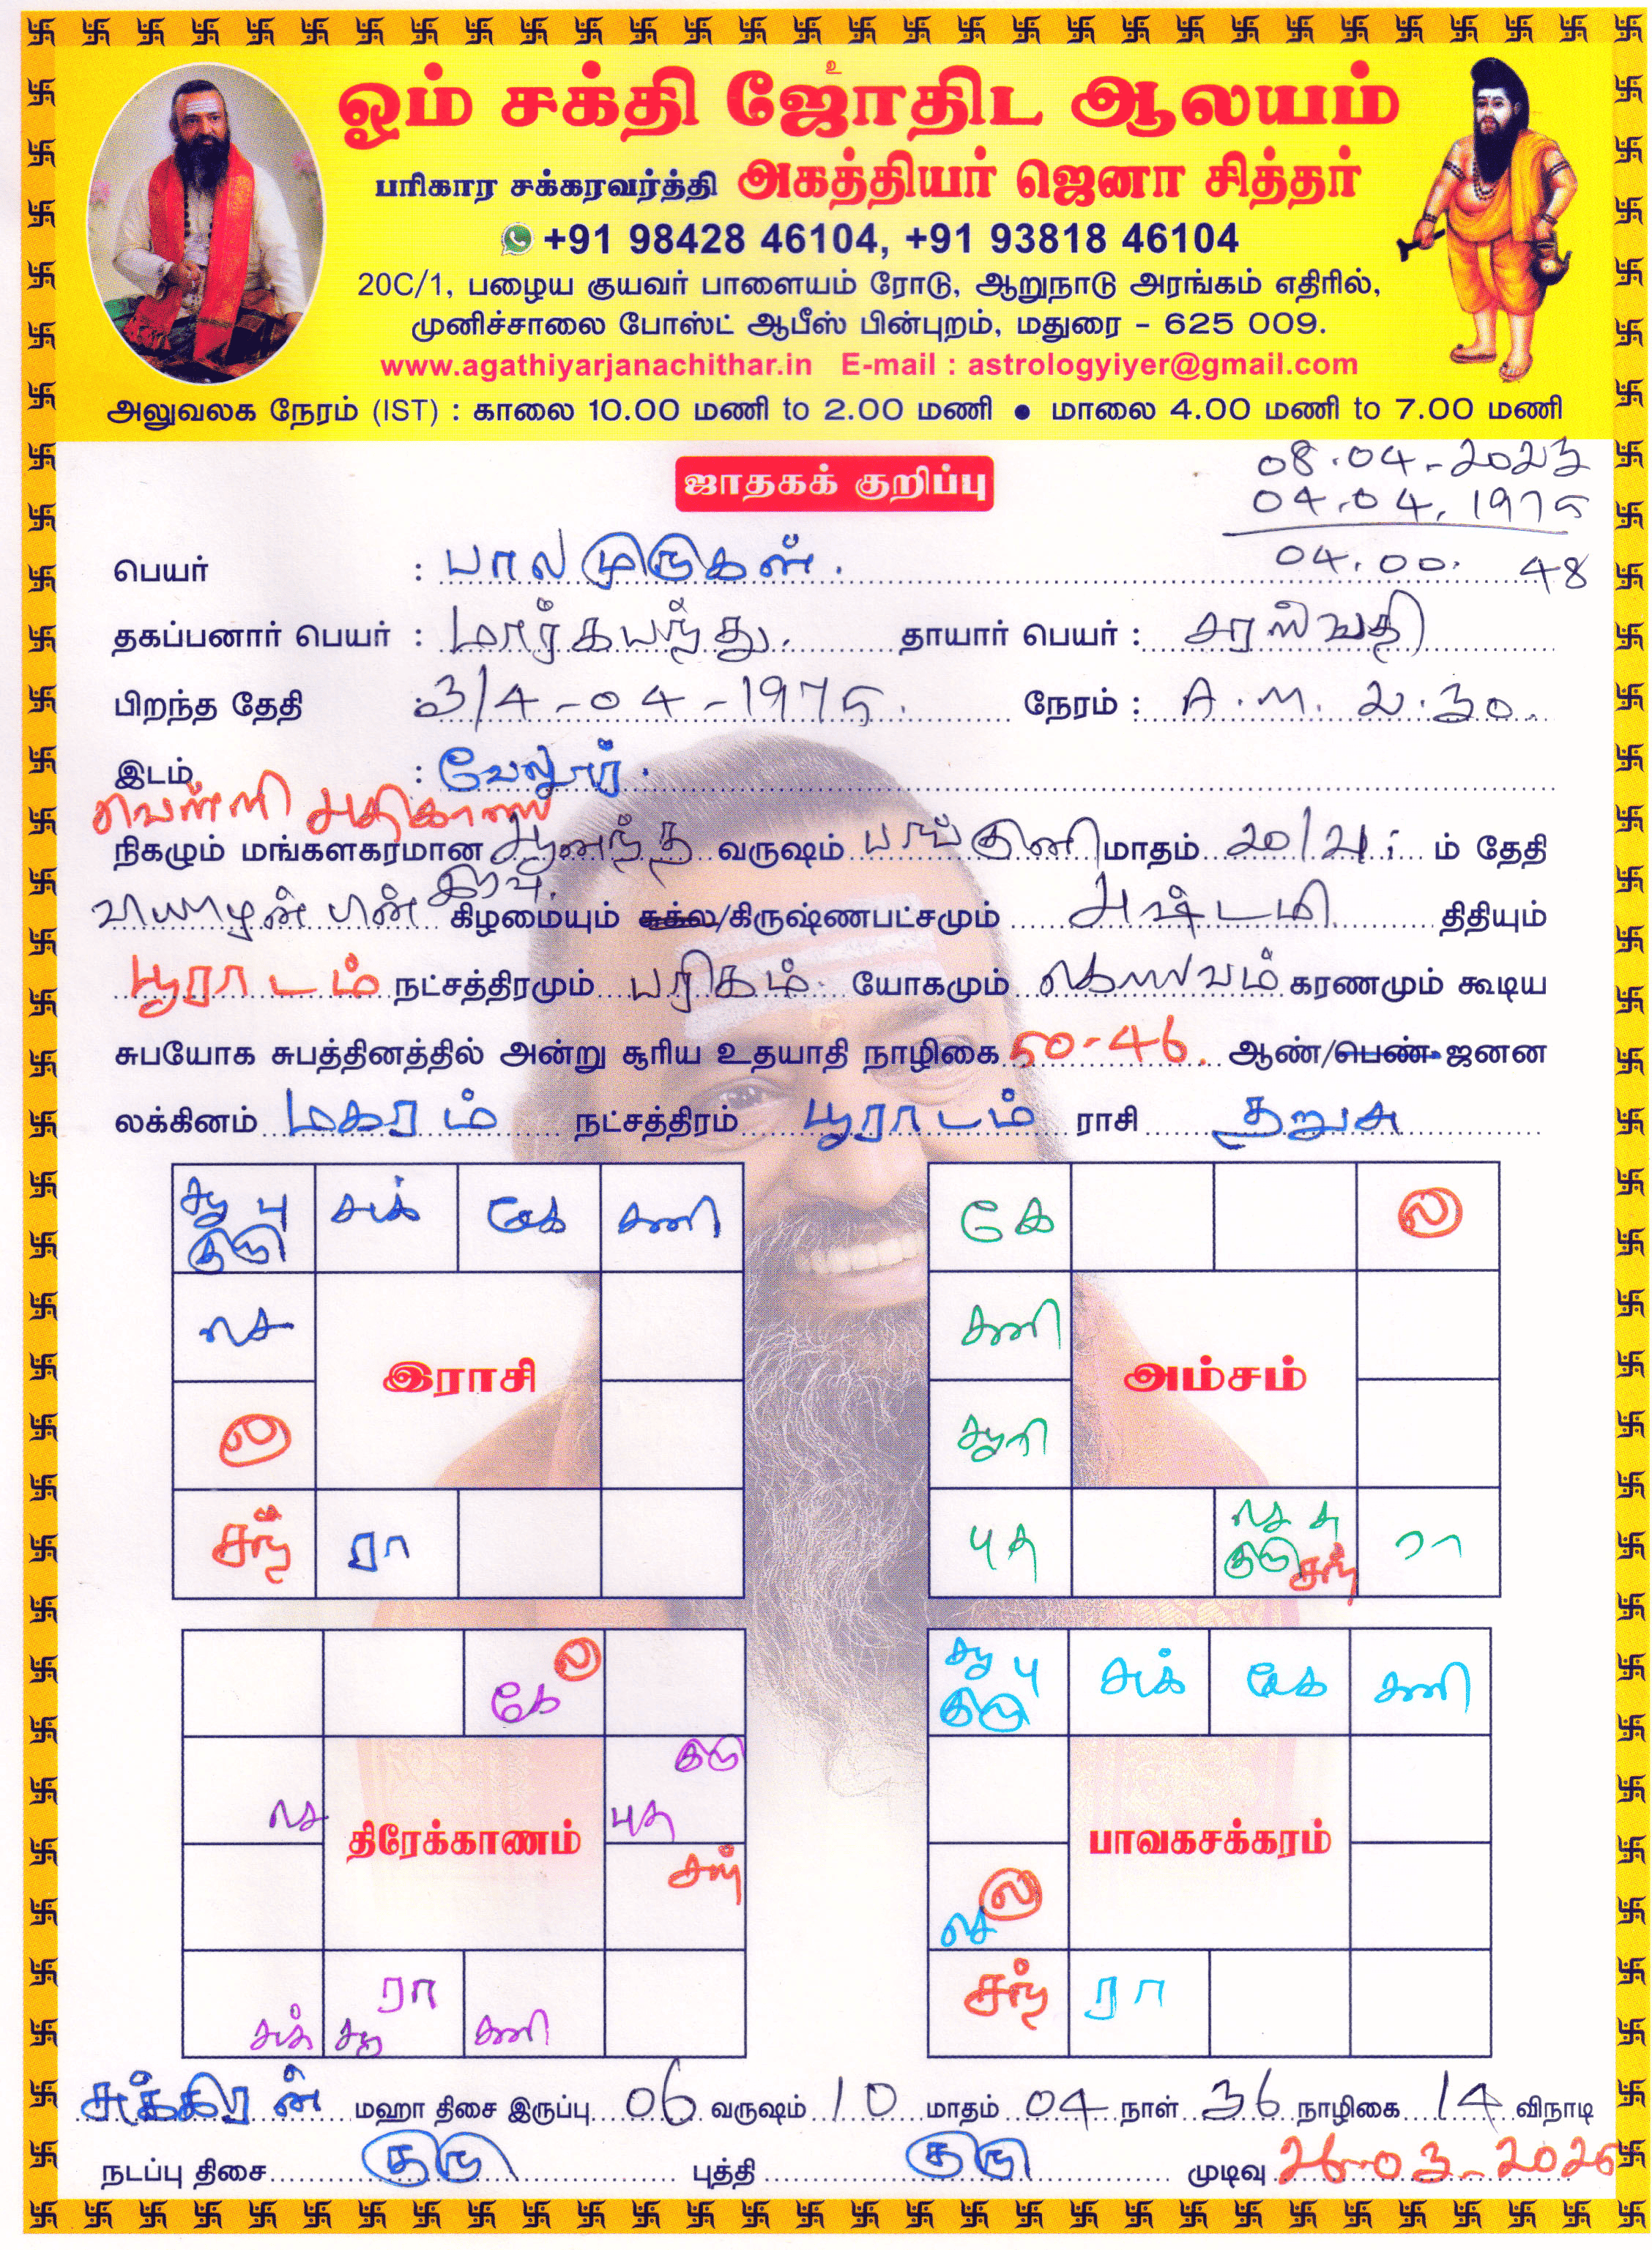 உ
ஓம் சக்தி ஜோதிட ஆலயம்
பரிகார சக்கரவர்த்தி அகத்தியர் ஜெனா சித்தர்
+91 98428 46104, +91 93818 46104
20C/1, பழைய குயவர் பாளையம் ரோடு, ஆறுநாடு அரங்கம் எதிரில்,
முனிச்சாலை போஸ்ட் ஆபீஸ் பின்புறம், மதுரை - 625 009.
www.agathiyarjanachithar.in E-mail : astrologyiyer@gmail.com
அலுவலக நேரம் (IST) : காலை 10.00 மணி to 2.00 மணி ● மாலை 4.00 மணி to 7.00 மணி
08.04.-2023
ஜாதகக் குறிப்பு
04.04.1975
04.00. 48
பெயர் : பாலமுருகன்.
தகப்பனார் பெயர் : மார்கயந்து. தாயார் பெயர் : சரஸ்வதி
பிறந்த தேதி : 3/4-04-1975. நேரம் : A.M. 2.30.
இடம் : வேலூர்.
வெள்ளி அதிகாலை
நிகழும் மங்களகரமான ஆனந்த வருஷம் பங்குனி மாதம் 20/21: ம் தேதி
வியாழன் பின் இரவு. கிழமையும் சுக்ல/கிருஷ்ணபட்சமும் அஷ்டமி திதியும்
பூராடம் நட்சத்திரமும் பரிகம். யோகமும் கௌலவம் கரணமும் கூடிய
சுபயோக சுபத்தினத்தில் அன்று சூரிய உதயாதி நாழிகை 50-46. ஆண்/பெண் ஜனன
லக்கினம் மகரம் நட்சத்திரம் பூராடம் ராசி தனுசு
சூ பு குரு சுக் கேது சனி
செ
இராசி
ல
சந் ரா
கே ல
சனி
அம்சம்
சூரி
புத செ சு குரு சந் ரா
கே ல
செ குரு புத
திரேக்காணம்
சந்
சுக் சூ ரா சனி
சூ பு குரு சுக் கேது சனி
பாவகசக்கரம்
செ ல
சந் ரா
சுக்கிரன் மஹா திசை இருப்பு 06 வருஷம் 10 மாதம் 04 நாள் 36 நாழிகை 14 விநாடி
நடப்பு திசை குரு புத்தி குரு முடிவு 26-03-2025